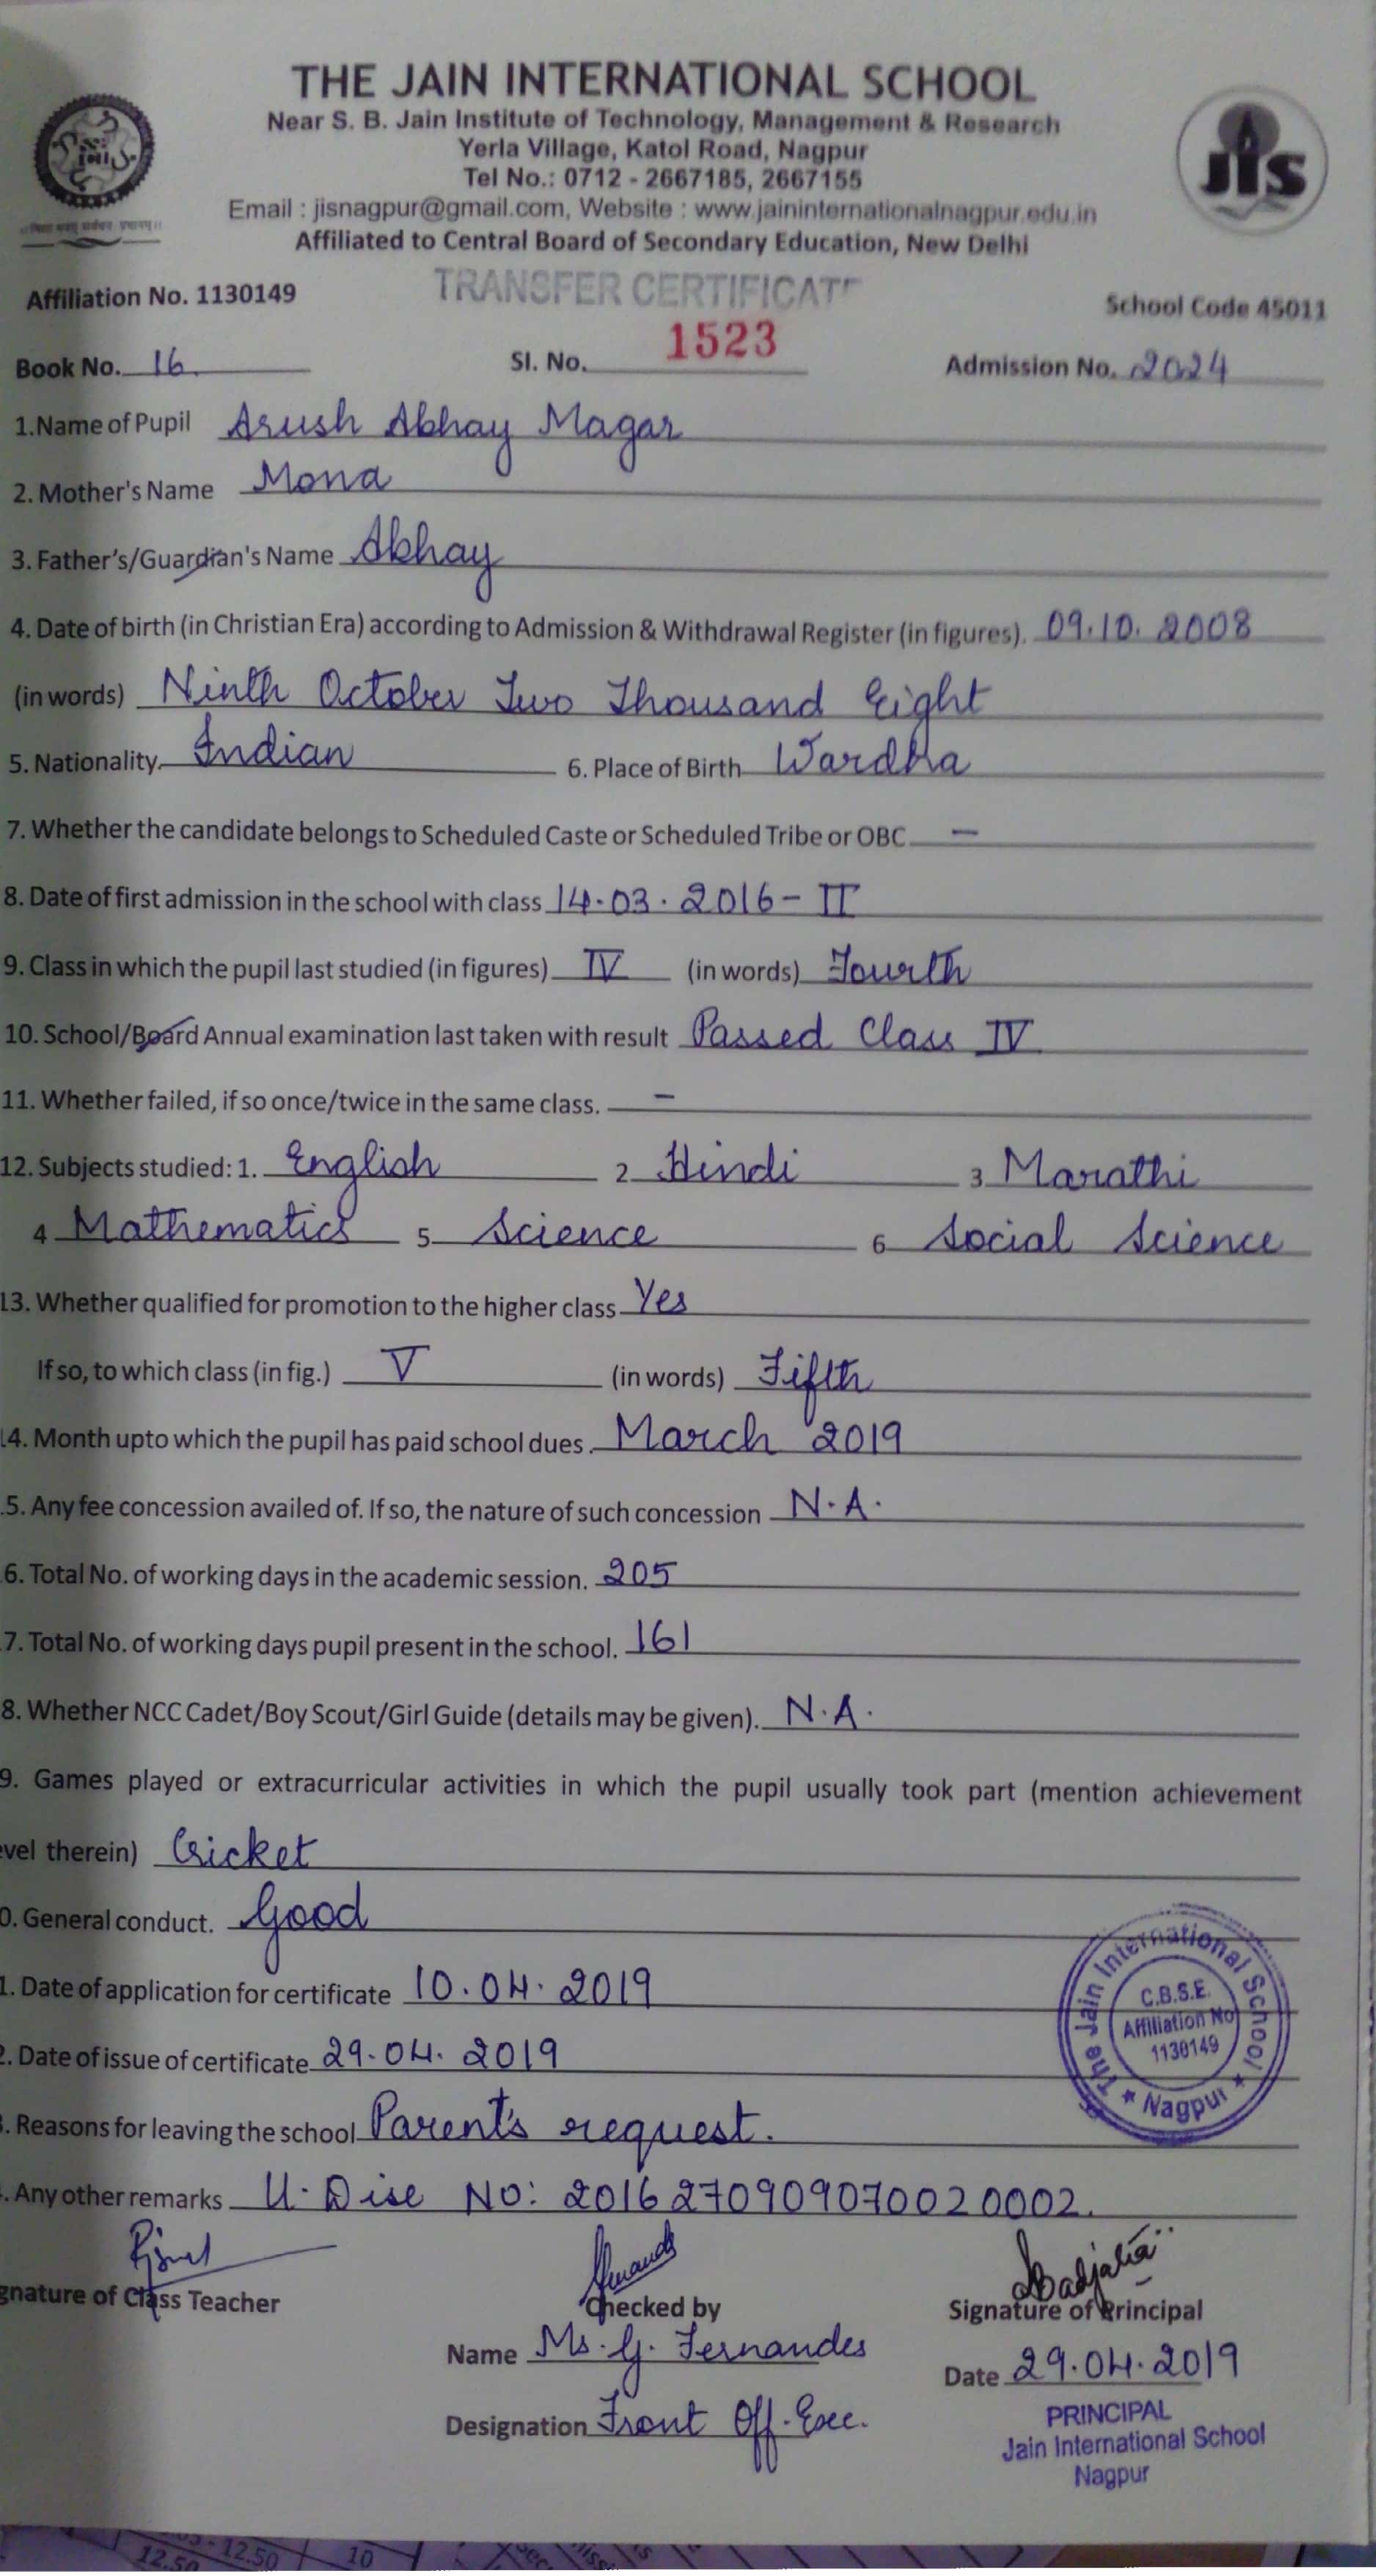 THE JAIN INTERNATIONAL SCHOOL
Near S. B. Jain Institute of Technology, Management & Research
Yerla Village, Katol Road, Nagpur
Tel No.: 0712 - 2667185, 2667155
Email : jisnagpur@gmail.com, Website : www.jaininternationalnagpur.edu.in
Affiliated to Central Board of Secondary Education, New Delhi
JIS
TRANSFER CERTIFICATE
Affiliation No. 1130149 School Code 45011
Book No. 16 Sl. No. 1523 Admission No. 2024
1.Name of Pupil Arush Abhay Magar
2. Mother's Name Mona
3. Father's/Guardian's Name Abhay
4. Date of birth (in Christian Era) according to Admission & Withdrawal Register (in figures). 09.10.2008
(in words) Ninth October Two Thousand Eight
5. Nationality Indian 6. Place of Birth Wardha
7. Whether the candidate belongs to Scheduled Caste or Scheduled Tribe or OBC —
8. Date of first admission in the school with class 14.03.2016 - II
9. Class in which the pupil last studied (in figures) IV (in words) Fourth
10. School/Board Annual examination last taken with result Passed Class IV
11. Whether failed, if so once/twice in the same class. —
12. Subjects studied: 1. English 2. Hindi 3. Marathi
4 Mathematics 5 Science 6 Social Science
13. Whether qualified for promotion to the higher class Yes
If so, to which class (in fig.) V (in words) Fifth
14. Month upto which the pupil has paid school dues. March 2019
.5. Any fee concession availed of. If so, the nature of such concession N.A.
6. Total No. of working days in the academic session. 205
7. Total No. of working days pupil present in the school. 161
8. Whether NCC Cadet/Boy Scout/Girl Guide (details may be given). N.A.
9. Games played or extracurricular activities in which the pupil usually took part (mention achievement
vel therein) Cricket
0. General conduct. Good
1. Date of application for certificate 10.04.2019
2. Date of issue of certificate 29.04.2019
. Reasons for leaving the school Parent's request.
. Any other remarks U. Dise No: 2016270909070020002.
The Jain International School ★ Nagpur ★
C.B.S.E.
Affiliation No
1130149
gnature of Class Teacher Checked by Signature of Principal
Name Ms. G. Fernandes
Date 29.04.2019
Designation Front Off. Exec.
PRINCIPAL
Jain International School
Nagpur
12.50
12.50 10